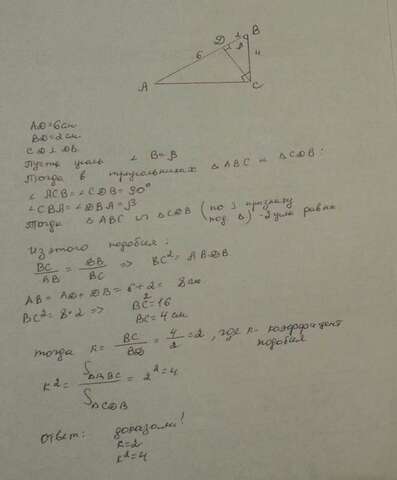 D
2
B
6
β
4
A
C
AD=6см
BD=2см.
CD⊥DB.
Пусть угол ∠B=β
Тогда в треугольниках ΔABC и ΔCDB:
∠ACB=∠CDB=90°
∠CBA=∠DBA=β
Тогда ΔABC ∽ ΔCDB (по 1 признаку
под. Δ) -2 угла равны
Из этого подобия:
BC/AB = DB/BC => BC²=AB·DB
AB=AD+DB=6+2=8см
BC²=8·2 => BC²=16
BC=4см
тогда k=BC/BD=4/2=2, где k-коэффициент
подобия
k²=S ΔABC/S ΔCDB=2²=4
Ответ: доказали!
k=2
k²=4